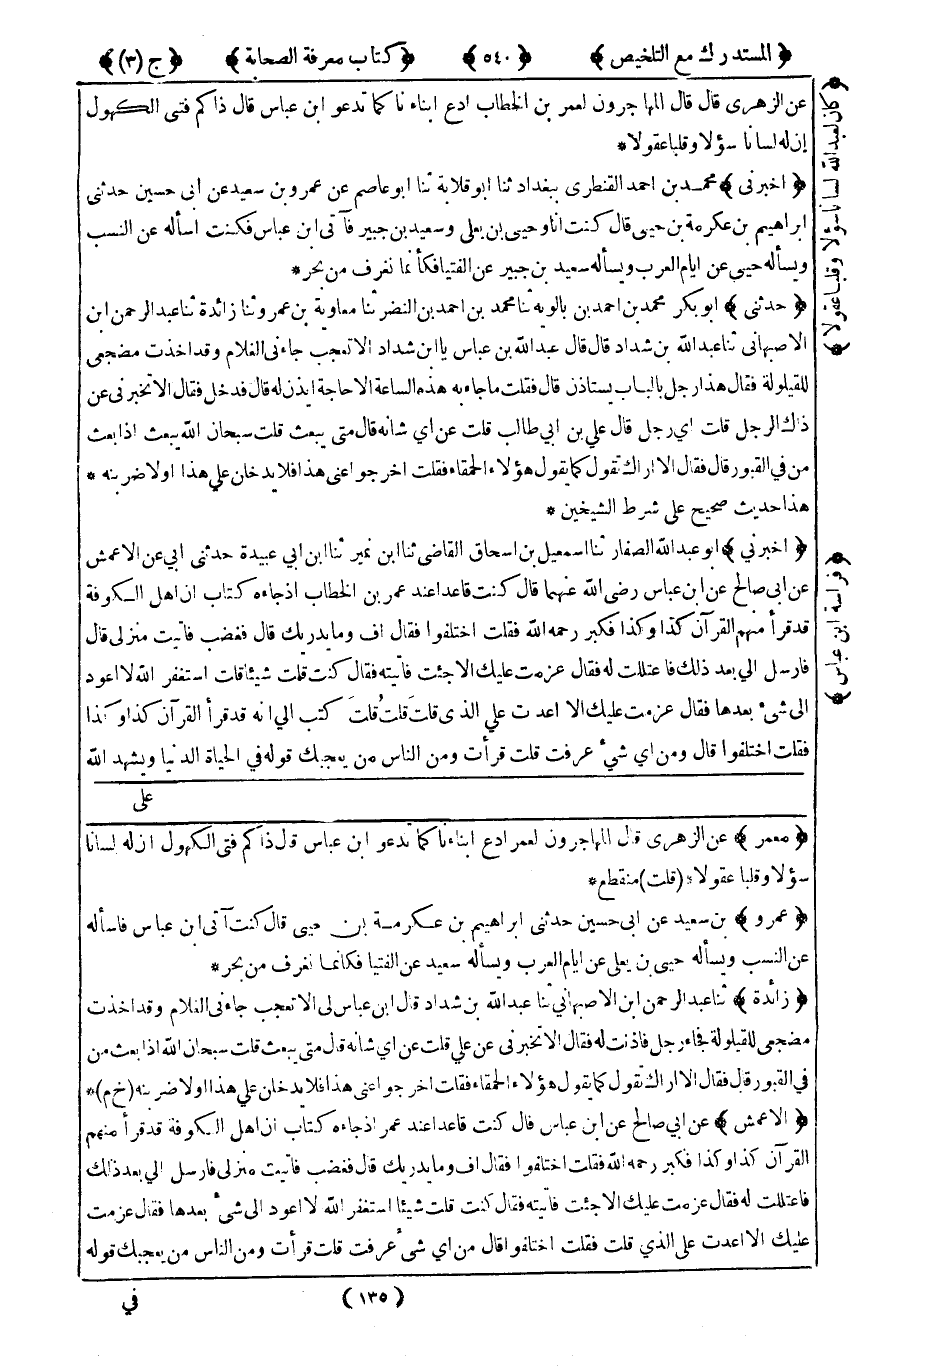 ﴿ المستدرك مع التلخيص ﴾ ﴿ ٥٤٠ ﴾ ﴿ كتاب معرفة الصحابة ﴾ ﴿ ج (٣) ﴾
عن الزهرى قال قال المهاجرون لعمر بن الخطاب ادع ابناء نا كما تدعو ابن عباس قال ذاكم فتى الكهول
إن له لسانا سؤلا وقلبا عقولا *
﴿ اخبرنى ﴾ محمد بن احمد القنطرى ببغداد ثنا ابو قلابة ثنا ابو عاصم عن عمرو بن سعيد عن ابى حسين حدثنى
ابراهيم بن عكرمة بن حيى قال كنت انا وحيى بن يعلى وسعيد بن جبير فآتى ابن عباس فكنت اسأله عن النسب
ويسأله حيى عن ايام العرب ويسأله سعيد بن جبير عن الفتيا فكأنما نغرف من بحر *
﴿ حدثنى ﴾ ابو بكر محمد بن احمد بن بالويه ثنا محمد بن احمد بن النضر ثنا معاوية بن عمرو ثنا زائدة ثنا عبد الرحمن ابن
الاصبهانى ثنا عبد الله بن شداد قال قال عبد الله بن عباس يا ابن شداد الا تعجب جاءنى الغلام وقد اخذت مضجعى
للقيلولة فقال هذا رجل بالباب يستاذن قال فقلت ما جاء به هذه الساعة الا حاجة ايذن له قال فدخل فقال الا تخبرنى عن
ذاك الرجل قلت اي رجل قال علي بن ابي طالب قلت عن اي شانه قال متى يبعث قلت سبحان الله يبعث اذا بعث
من في القبور قال فقال الا اراك تقول كما يقول هؤلاء الحمقاء فقلت اخرجوا عنى هذا فلا يدخلن علي هذا اولا ضربنه *
هذا حديث صحيح على شرط الشيخين *
﴿ اخبرني ﴾ ابو عبد الله الصفار ثنا اسمعيل بن اسحاق القاضى ثنا ابن نمير ثنا ابن ابي عبيدة حدثنى ابي عن الاعمش
عن ابى صالح عن ابن عباس رضى الله عنهما قال كنت قاعدا عند عمر بن الخطاب اذ جاءه كتاب ان اهل الكوفة
قد قرأ منهم القرآن كذا وكذا فكبر رحمه الله فقلت اختلفوا فقال اف وما يدريك قال فغضب فاتيت منزلى قال
فارسل الي بعد ذلك فاعتللت له فقال عزمت عليك الا جئت فاتيته فقال كنت قلت شيئا قلت استغفر الله لا اعود
الى شىء بعدها فقال عزمت عليك الا اعدت علي الذى قلت قلت قلت كتب الي انه قد قرأ القرآن كذا وكذا
فقلت اختلفوا قال ومن اي شىء عرفت قلت قرأت ومن الناس من يعجبك قوله في الحياة الدنيا ويشهد الله
على
﴿ معمر ﴾ عن الزهرى قال المهاجرون لعمر ادع ابناءنا كما تدعو ابن عباس قال ذاكم فتى الكهول ان له لسانا
سؤلا وقلبا عقولا * (قلت) منقطع *
﴿ عمرو ﴾ بن سعيد عن ابى حسين حدثنى ابراهيم بن عكرمة بن حيى قال كنت آتى ابن عباس فاسأله
عن النسب ويسأله حيى بن يعلى عن ايام العرب ويسأله سعيد عن الفتيا فكانما نغرف من بحر *
﴿ زائدة ﴾ ثنا عبد الرحمن ابن الاصبهاني ثنا عبد الله بن شداد قال ابن عباس لى الا تعجب جاءنى الغلام وقد اخذت
مضجعى للقيلولة فجاء رجل فاذنت له فقال الا تخبرنى عن علي قلت عن اي شانه قال متى يبعث قلت سبحان الله اذا بعث من
في القبور قال فقال الا اراك تقول كما يقول هؤلاء الحمقاء فقلت اخرجوا عنى هذا فلا يدخلن علي هذا اولا ضربنه (خ م) *
﴿ الاعمش ﴾ عن ابي صالح عن ابن عباس قال كنت قاعدا عند عمر اذ جاءه كتاب ان اهل الكوفة قد قرأ منهم
القرآن كذا وكذا فكبر رحمه الله فقلت اختلفوا فقال اف وما يدريك قال فغضب فاتيت منزلى فارسل الي بعد ذلك
فاعتللت له فقال عزمت عليك الا جئت فاتيته فقال كنت قلت شيئا استغفر الله لا اعود الى شىء بعدها فقال عزمت
عليك الا اعدت على الذي قلت فقلت اختلفوا قال من اي شىء عرفت قلت قرأت ومن الناس من يعجبك قوله
(١٣٥) في
﴿ كان لعبد الله لسانا سؤلا وقلبا عقولا ﴾
﴿ فراسة ابن عباس ﴾